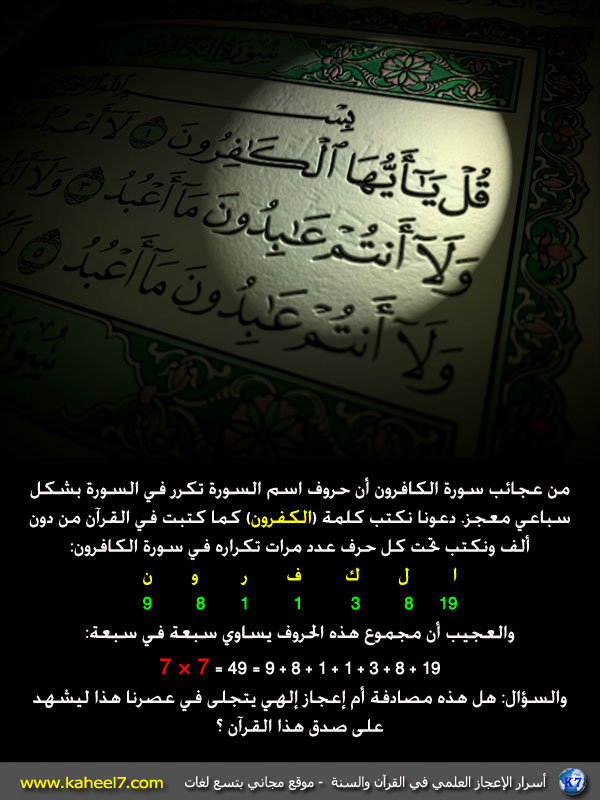 سُورَةُ الكَافِرُون
بِسْـــمِ اللهِ
قُلْ يَٰٓأَيُّهَا ٱلْكَٰفِرُونَ ١ لَآ أَعْبُدُ مَا
وَلَآ أَنتُمْ عَٰبِدُونَ مَآ أَعْبُدُ ٣ وَلَآ أَنَا۠
وَلَآ أَنتُمْ عَٰبِدُونَ مَآ أَعْبُدُ ٥
من عجائب سورة الكافرون أن حروف اسم السورة تكرر في السورة بشكل
سباعي معجز. دعونا نكتب كلمة (الكفرون) كما كتبت في القرآن من دون
ألف ونكتب تحت كل حرف عدد مرات تكراره في سورة الكافرون:
ا ل ك ف ر و ن
19 8 3 1 1 8 9
والعجيب أن مجموع هذه الحروف يساوي سبعة في سبعة:
19 + 8 + 3 + 1 + 1 + 8 + 9 = 49 = 7 × 7
والسؤال: هل هذه مصادفة أم إعجاز إلهي يتجلى في عصرنا هذا ليشهد
على صدق هذا القرآن ؟
K7 أسرار الإعجاز العلمي في القرآن والسنة - موقع مجاني بتسع لغات www.kaheel7.com